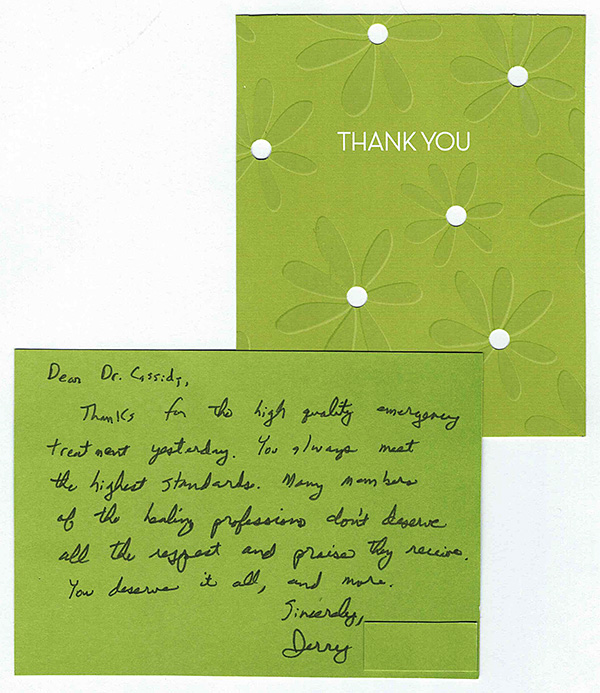 THANK YOU
Dear Dr. Cassidy,
Thanks for the high quality emergency
treatment yesterday. You always meet
the highest standards. Many members
of the healing professions don't deserve
all the respect and praise they receive.
You deserve it all, and more.
Sincerely,